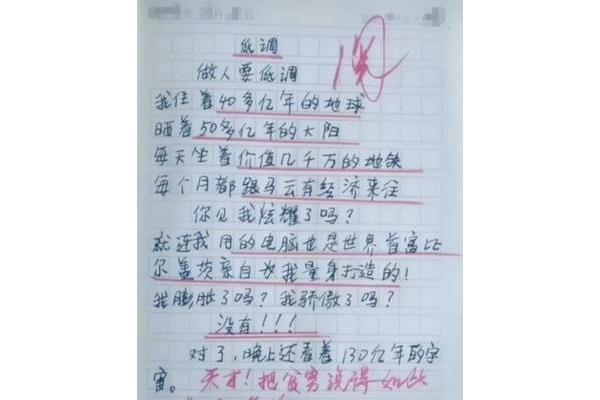 月 日
阅
低调
做人要低调
我住着40多亿年的地球
晒着50多亿年的太阳
每天坐着价值几千万的地铁
每个月都跟马云有经济来往
你见我炫耀了吗？
就连我用的电脑也是世界首富比
尔盖茨亲自为我量身打造的！
我膨胀了吗？我骄傲了吗？
没有！！！
对了，晚上还看着130亿年的宇
宙。天才！把贫穷说得如此